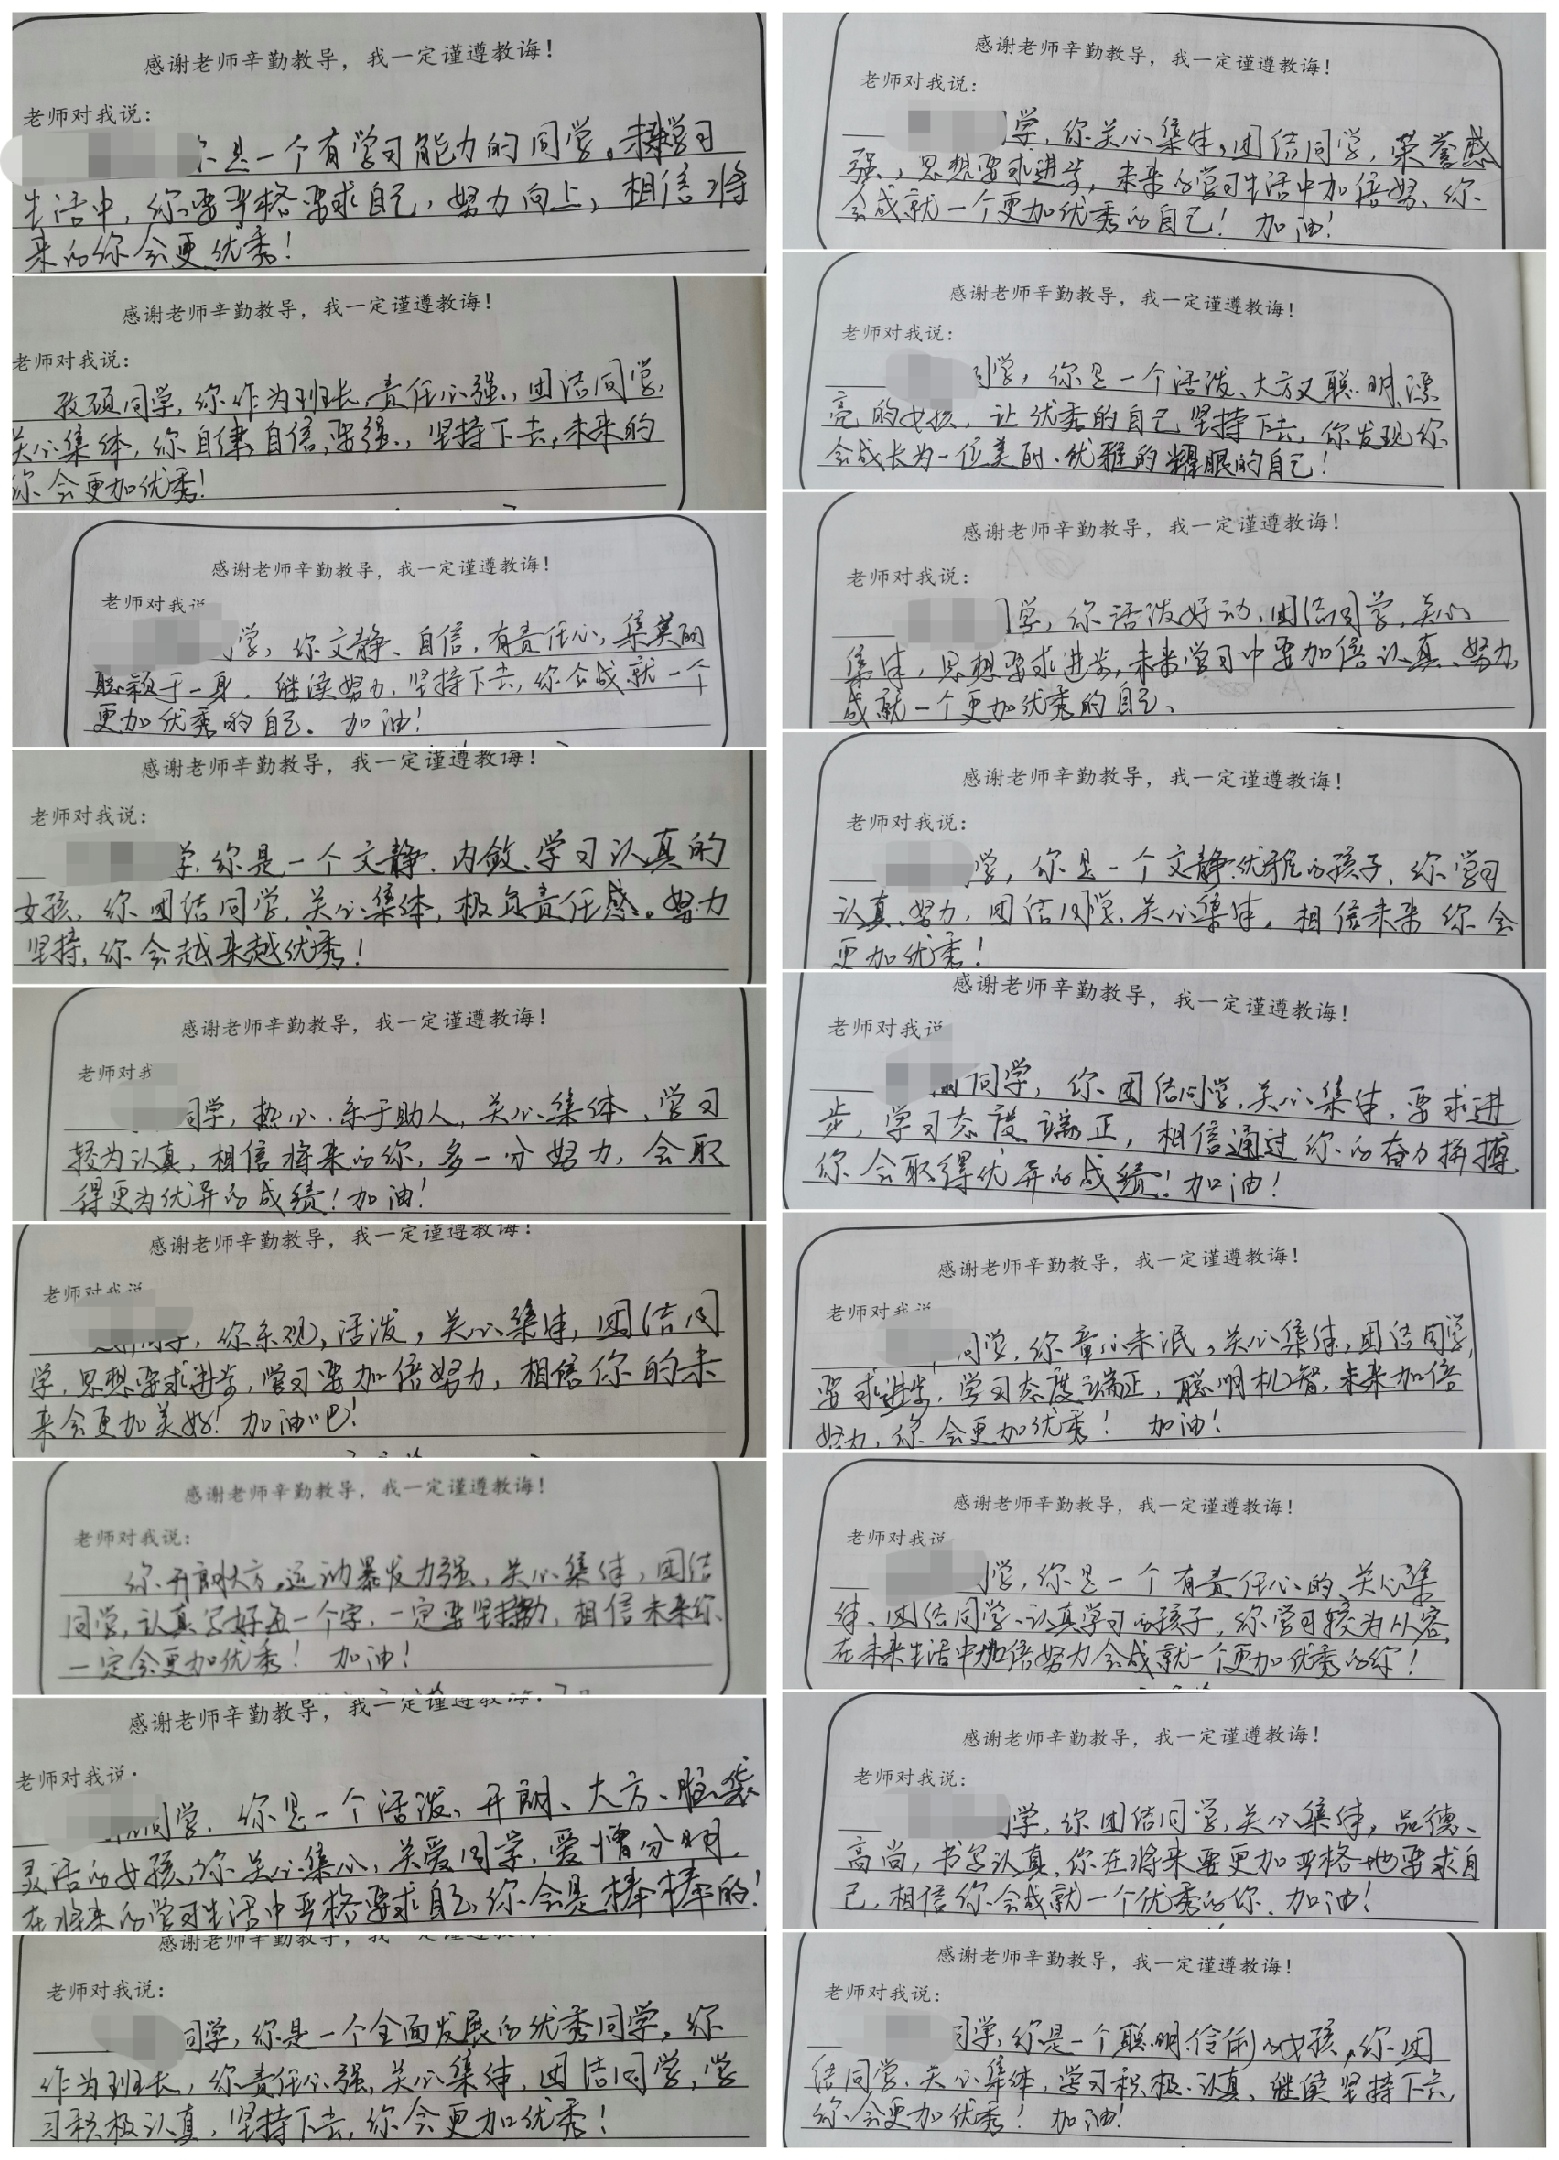 感谢老师辛勤教导，我一定谨遵教诲！
老师对我说：
你是一个有学习能力的同学。未来学习
生活中，你要严格要求自己，努力向上，相信将
来的你会更优秀！
感谢老师辛勤教导，我一定谨遵教诲！
老师对我说：
孜硕同学，你作为班长，责任心强，团结同学，
关心集体，你自律、自信、要强，坚持下去，未来的
你会更加优秀！
感谢老师辛勤教导，我一定谨遵教诲！
老师对我说
学，你文静、自信，有责任心，集美丽
聪颖于一身，继续努力，坚持下去，你会成就一个
更加优秀的自己。加油！
感谢老师辛勤教导，我一定谨遵教诲！
老师对我说：
学，你是一个文静、内敛、学习认真的
女孩，你团结同学，关心集体，极负责任感。努力
坚持，你会越来越优秀！
感谢老师辛勤教导，我一定谨遵教诲！
老师对我
同学，热心、乐于助人，关心集体，学习
较为认真，相信将来的你，多一分努力，会取
得更为优异的成绩！加油！
感谢老师辛勤教导，我一定谨遵教诲！
老师对我说
同学，你乐观，活泼，关心集体，团结同
学，思想要求进步，学习要加倍努力，相信你的未
来会更加美好！加油吧！
感谢老师辛勤教导，我一定谨遵教诲！
老师对我说：
你开朗大方，运动暴发力强，关心集体，团结
同学，认真写好每一个字，一定要坚持努力，相信未来你
一定会更加优秀！加油！
感谢老师辛勤教导，我一定谨遵教诲！
老师对我说
同学，你是一个活泼、开朗、大方、脑袋
灵活的女孩，你关心集心，关爱同学，爱憎分明，
在将来的学习生活中严格要求自己，你会是棒棒的！
感谢老师辛勤教导，我一定谨遵教诲
老师对我说：
同学，你是一个全面发展的优秀同学，你
作为班长，你责任心强，关心集体，团结同学，学
习积极认真，坚持下去，你会更加优秀！
感谢老师辛勤教导，我一定谨遵教诲！
老师对我说：
学，你关心集体，团结同学，荣誉感
强，思想要求进步，未来的学习生活中加倍努，你
会成就一个更加优秀的自己！加油！
感谢老师辛勤教导，我一定谨遵教诲！
老师对我说：
同学，你是一个活泼、大方又聪明漂
亮的女孩，让优秀的自己坚持下去，你发现你
会成长为一位美丽、优雅的耀眼的自己！
感谢老师辛勤教导，我一定谨遵教诲！
老师对我说：
同学，你活泼好动，团结同学，关心
集体，思想要求进步，未来学习中要加倍认真、努力，
成就一个更加优秀的自己、
感谢老师辛勤教导，我一定谨遵教诲！
老师对我说：
学，你是一个文静优雅的孩子，你学习
认真、努力，团结同学，关心集体，相信未来你会
更加优秀！
感谢老师辛勤教导，我一定谨遵教诲！
老师对我说
同学，你团结同学，关心集体，要求进
步，学习态度端正，相信通过你的奋力拼搏
你会取得优异的成绩！加油！
感谢老师辛勤教导，我一定谨遵教诲！
老师对我说
同学，你童心未泯，关心集体，团结同学，
要求进步，学习态度端正，聪明机智，未来加倍
努力，你会更加优秀！加油！
感谢老师辛勤教导，我一定谨遵教诲！
老师对我说
学，你是一个有责任心的、关心集
体、团结同学、认真学习的孩子，你学习较为从容，
在未来生活中加倍努力会成就一个更加优秀的你！
感谢老师辛勤教导，我一定谨遵教诲！
老师对我说：
学，你团结同学，关心集体，品德、
高尚，书写认真，你在将来要更加严格地要求自
己，相信你会成就一个优秀的你、加油！
感谢老师辛勤教导，我一定谨遵教诲！
老师对我说：
同学，你是一个聪明伶俐的女孩，你团
结同学、关心集体，学习积极、认真，继续坚持下去，
你会更加优秀！加油！